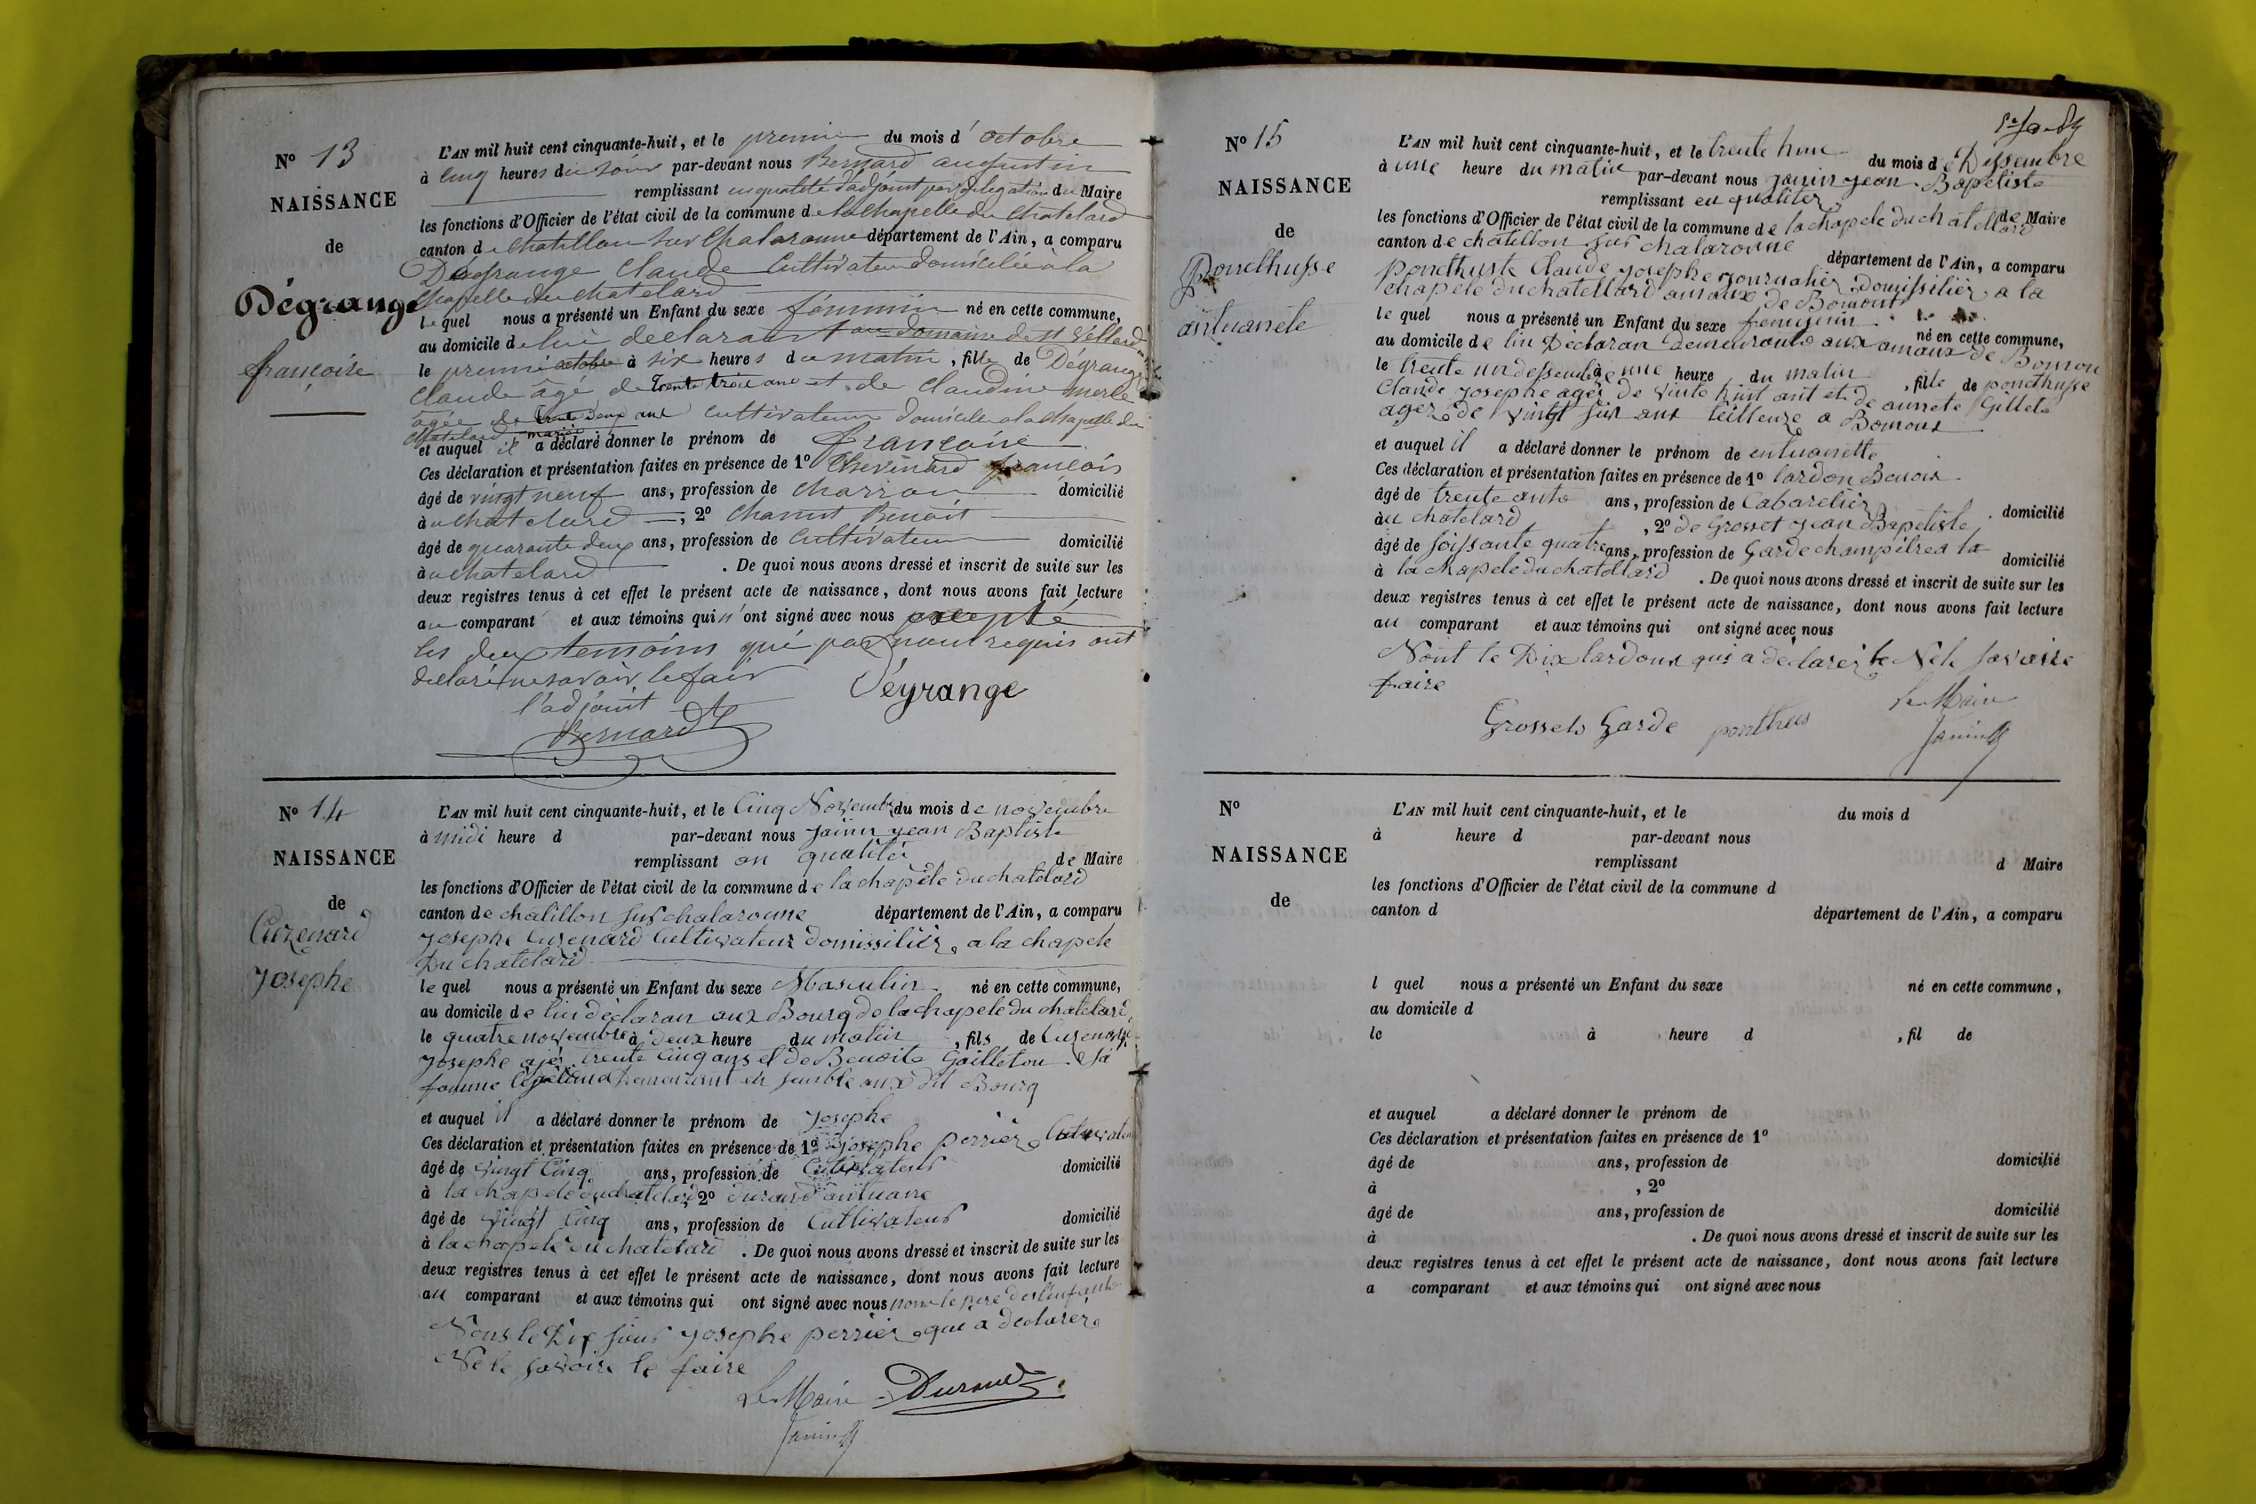 N° 13
NAISSANCE
de
Dégrange
françoise
L'AN mil huit cent cinquante-huit, et le premier du mois d'octobre
à cinq heures du soir par-devant nous Bernard augustin
remplissant en qualité d'adjoint par délégation du Maire
les fonctions d'Officier de l'état civil de la commune de la chapelle du Chatelard
canton de Chatillon sur Chalaronne département de l'Ain, a comparu
Degrange Claude Cultivateur domicilié à la
chapelle du chatelard
le quel nous a présenté un Enfant du sexe féminin né en cette commune,
au domicile de lui declarant au domaine de
le premier octobre à six heures du matin, fille de Dégrange
Claude âgé de trente trois ans et de Claudine merle
âgée de trente deux ans cultivateurs domiciliés a la chapelle du
chatelard mariés
et auquel il a déclaré donner le prénom de françoise
Ces déclaration et présentation faites en présence de 1° Chevinard françois
âgé de vingt neuf ans, profession de charron domicilié
à u chatelard, 2° Chanut Benoit
âgé de quarante deux ans, profession de Cultivateur domicilié
à u chatelard. De quoi nous avons dressé et inscrit de suite sur les
deux registres tenus à cet effet le présent acte de naissance, dont nous avons fait lecture
au comparant et aux témoins qui n'ont signé avec nous excepté
les deux temoins qui par nous requis ont
déclaré ne savoir le fair
l'adjoint Dégrange
Bernard
N° 14
NAISSANCE
de
Curenard
Josephe
L'AN mil huit cent cinquante-huit, et le Cinq Novembre du mois de novembre
à midi heure d par-devant nous Janin jean Baptiste
remplissant an qualitér de Maire
les fonctions d'Officier de l'état civil de la commune de la chapele du chatelard
canton de chatillon sur chalaronne département de l'Ain, a comparu
Josephe Curenard Cultivateur domissiliér a la chapele
Du chatelard
le quel nous a présenté un Enfant du sexe Masculin né en cette commune,
au domicile de lui déclaran aux Bourg de la chapele du chatelard
le quatre novembre à deux heure du matin, fils de Curenard
Josephe ajér trente Cinq ans et de Benoite Gailleton sa
famme demeurant en semble aux dit Bourg
et auquel il a déclaré donner le prénom de Josephe
Ces déclaration et présentation faites en présence de 1° Josephe perriér Cultivateur
âgé de vingt Cinq ans, profession de Cultivateur domicilié
à la chapele du chatelard 2° durand antuane
âgé de vingt Cinq ans, profession de Cultivateur domicilié
à la chapele du chatelard. De quoi nous avons dressé et inscrit de suite sur les
deux registres tenus à cet effet le présent acte de naissance, dont nous avons fait lecture
au comparant et aux témoins qui ont signé avec nous non le pere de l'enfant
Nons le Dit sieur Josephe perriér que a declarér
Ne le savoire le faire
Le Maire Durand
Janin
N° 15
NAISSANCE
de
Poncthusse
antuanete
L'AN mil huit cent cinquante-huit, et le trente hune du mois de Dessembre
à une heure du matin par-devant nous Janin jean Bapetiste
remplissant en qualitér de Maire
les fonctions d'Officier de l'état civil de la commune de la chapele du chatellard
canton de chatillon sur chalaronne département de l'Ain, a comparu
Poncthuste Claude Josephe Journaliér domissiliér a la
chapele du chatellard amaux de Bomont
le quel nous a présenté un Enfant du sexe femenin né en cette commune,
au domicile de lui Declaran demeurant aux amaux de Bomon
le trente un dessembre à une heure du matin, fille de poncthusse
Claude Josephe agér de vinte huit ant et de annete Gillete
agér de vingt six ans tailleuze a Bomont
et auquel il a déclaré donner le prénom de entuanette
Ces déclaration et présentation faites en présence de 1° lardon Benoit
âgé de trente ants ans, profession de Cabaretiér domicilié
à u chatelard, 2° de Grosset jean Bapetiste
âgé de soissante quatre ans, profession de Garde champêtre a la domicilié
à la chapele du chatellard. De quoi nous avons dressé et inscrit de suite sur les
deux registres tenus à cet effet le présent acte de naissance, dont nous avons fait lecture
au comparant et aux témoins qui ont signé avec nous
Nont le Dix lardont qui a déclarér Ne le savoire
faire
Le Maire
Grossets Garde ponthus Janin
N°
NAISSANCE
de
L'AN mil huit cent cinquante-huit, et le du mois d
à heure d par-devant nous
remplissant d Maire
les fonctions d'Officier de l'état civil de la commune d
canton d département de l'Ain, a comparu
l quel nous a présenté un Enfant du sexe né en cette commune,
au domicile d
le à heure d , fil de
et auquel a déclaré donner le prénom de
Ces déclaration et présentation faites en présence de 1°
âgé de ans, profession de domicilié
à , 2°
âgé de ans, profession de domicilié
à . De quoi nous avons dressé et inscrit de suite sur les
deux registres tenus à cet effet le présent acte de naissance, dont nous avons fait lecture
a comparant et aux témoins qui ont signé avec nous